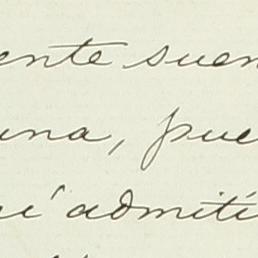 ente suen
una, pue
í admití